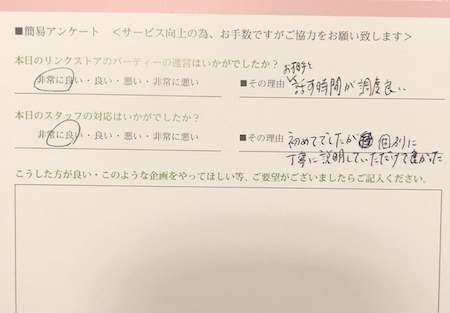 ■簡易アンケート ＜サービス向上の為、お手数ですがご協力をお願い致します＞
本日のリンクストアのパーティーの運営はいかがでしたか？
お相手と
非常に良い・良い・悪い・非常に悪い ■その理由 話す時間が調度良い
本日のスタッフの対応はいかがでしたか？
非常に良い・良い・悪い・非常に悪い ■その理由 初めてでしたが個別に
丁寧に説明していただけて良かった
こうした方が良い・このような企画をやってほしい等、ご要望がございましたらご記入ください。